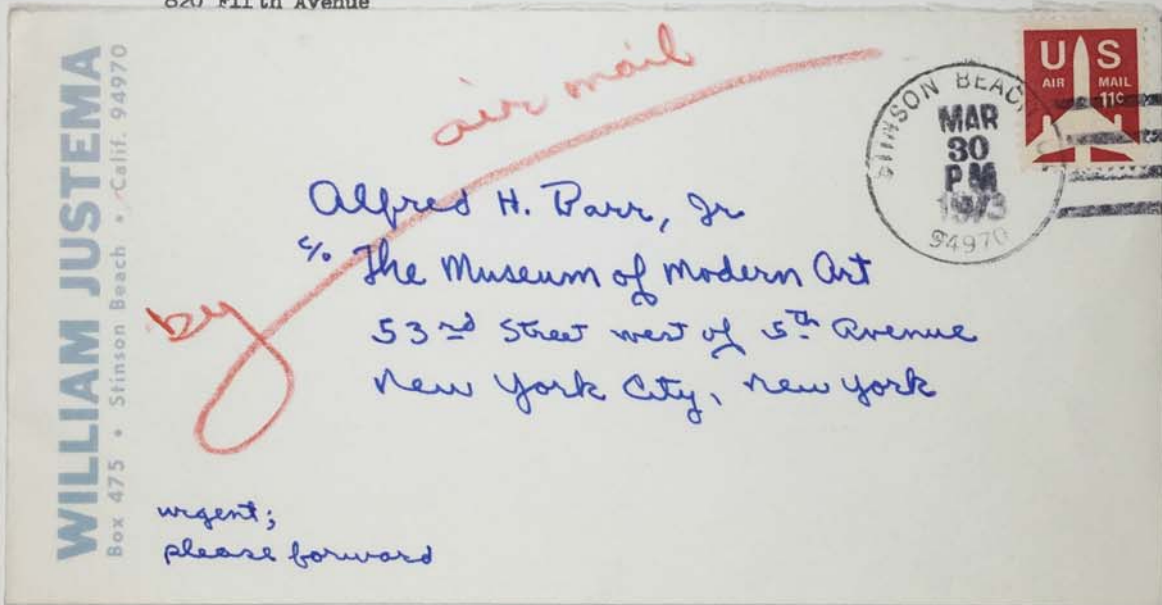 820 Fifth Avenue
WILLIAM JUSTEMA
Box 475 • Stinson Beach • Calif. 94970
by air mail
STINSON BEACH
MAR
30
PM
1973
94970
US
AIR MAIL
11c
Alfred H. Barr, Jr.
c/o The Museum of Modern Art
53rd Street west of 5th Avenue
New York City, New York
urgent;
please forward